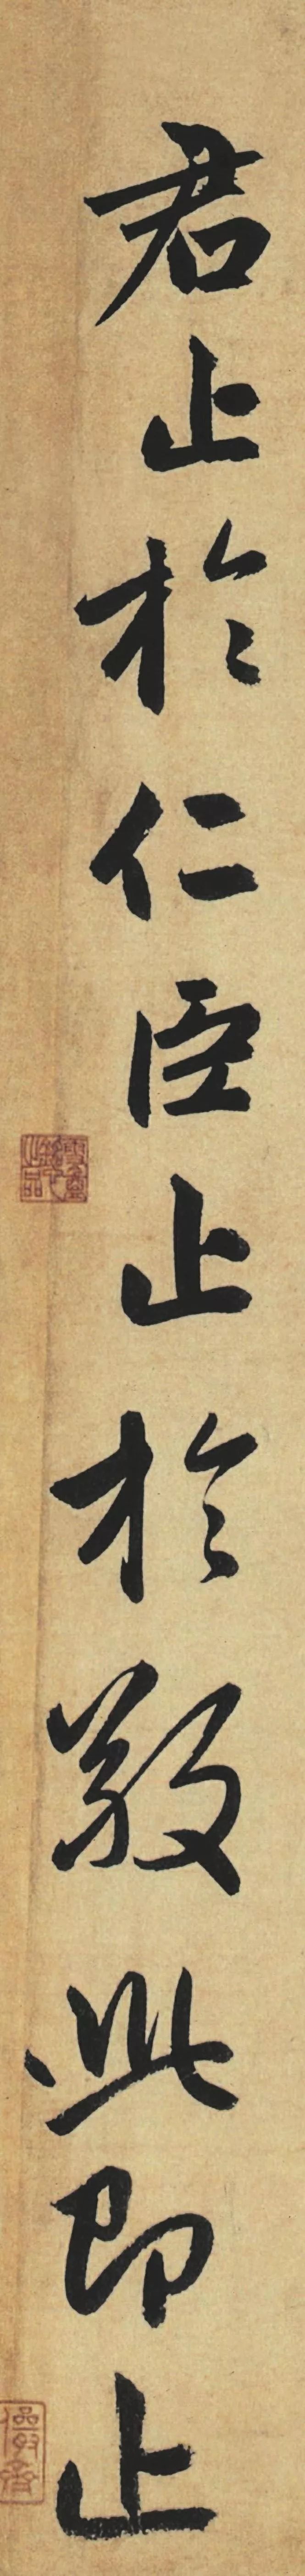 君止於仁臣止於敬此即止